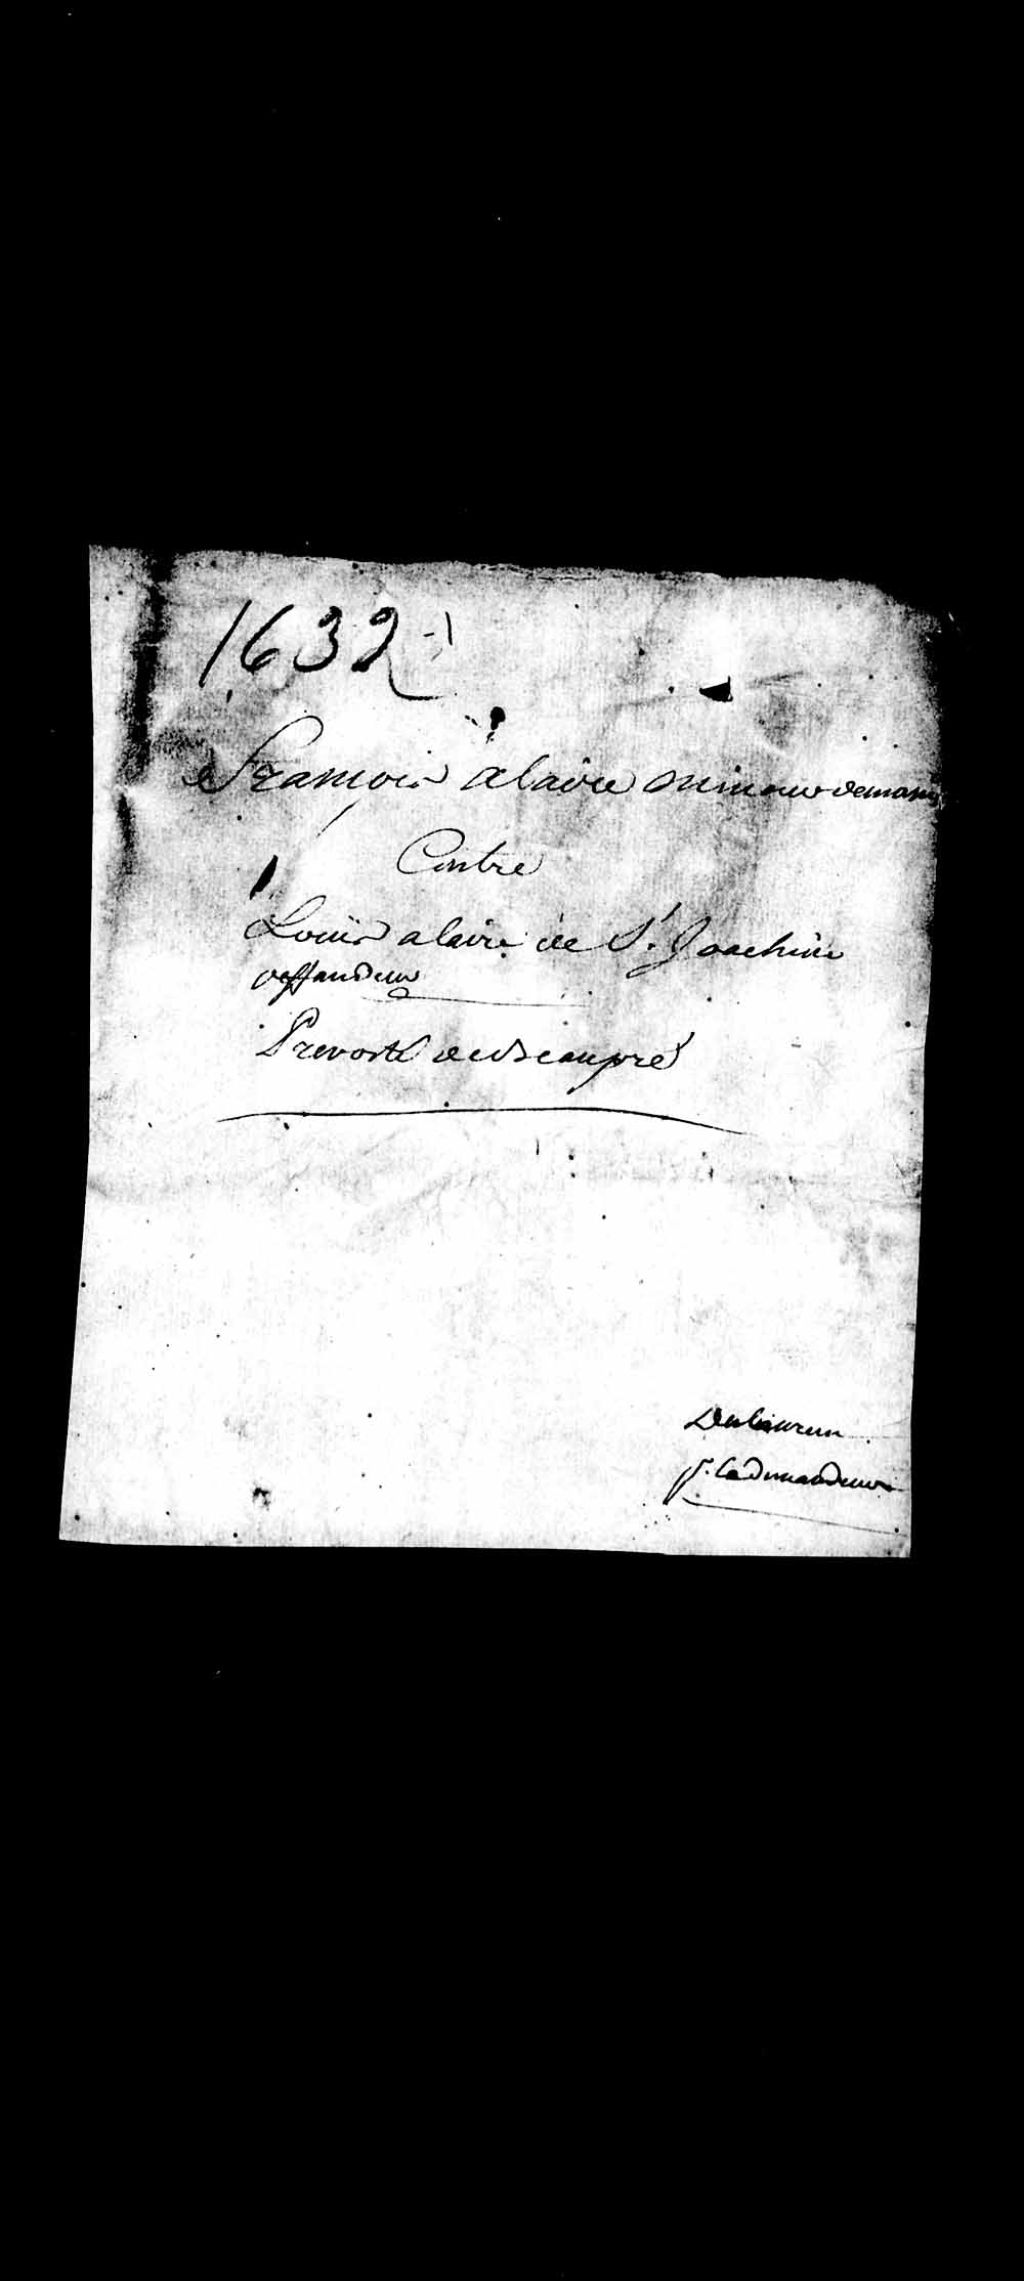 1632
François alaire mineur deman
Contre
Louis alaire de St. Joachim
deffandeur
Prevosté de Beaupré
Deslaurien
p. le demandeur